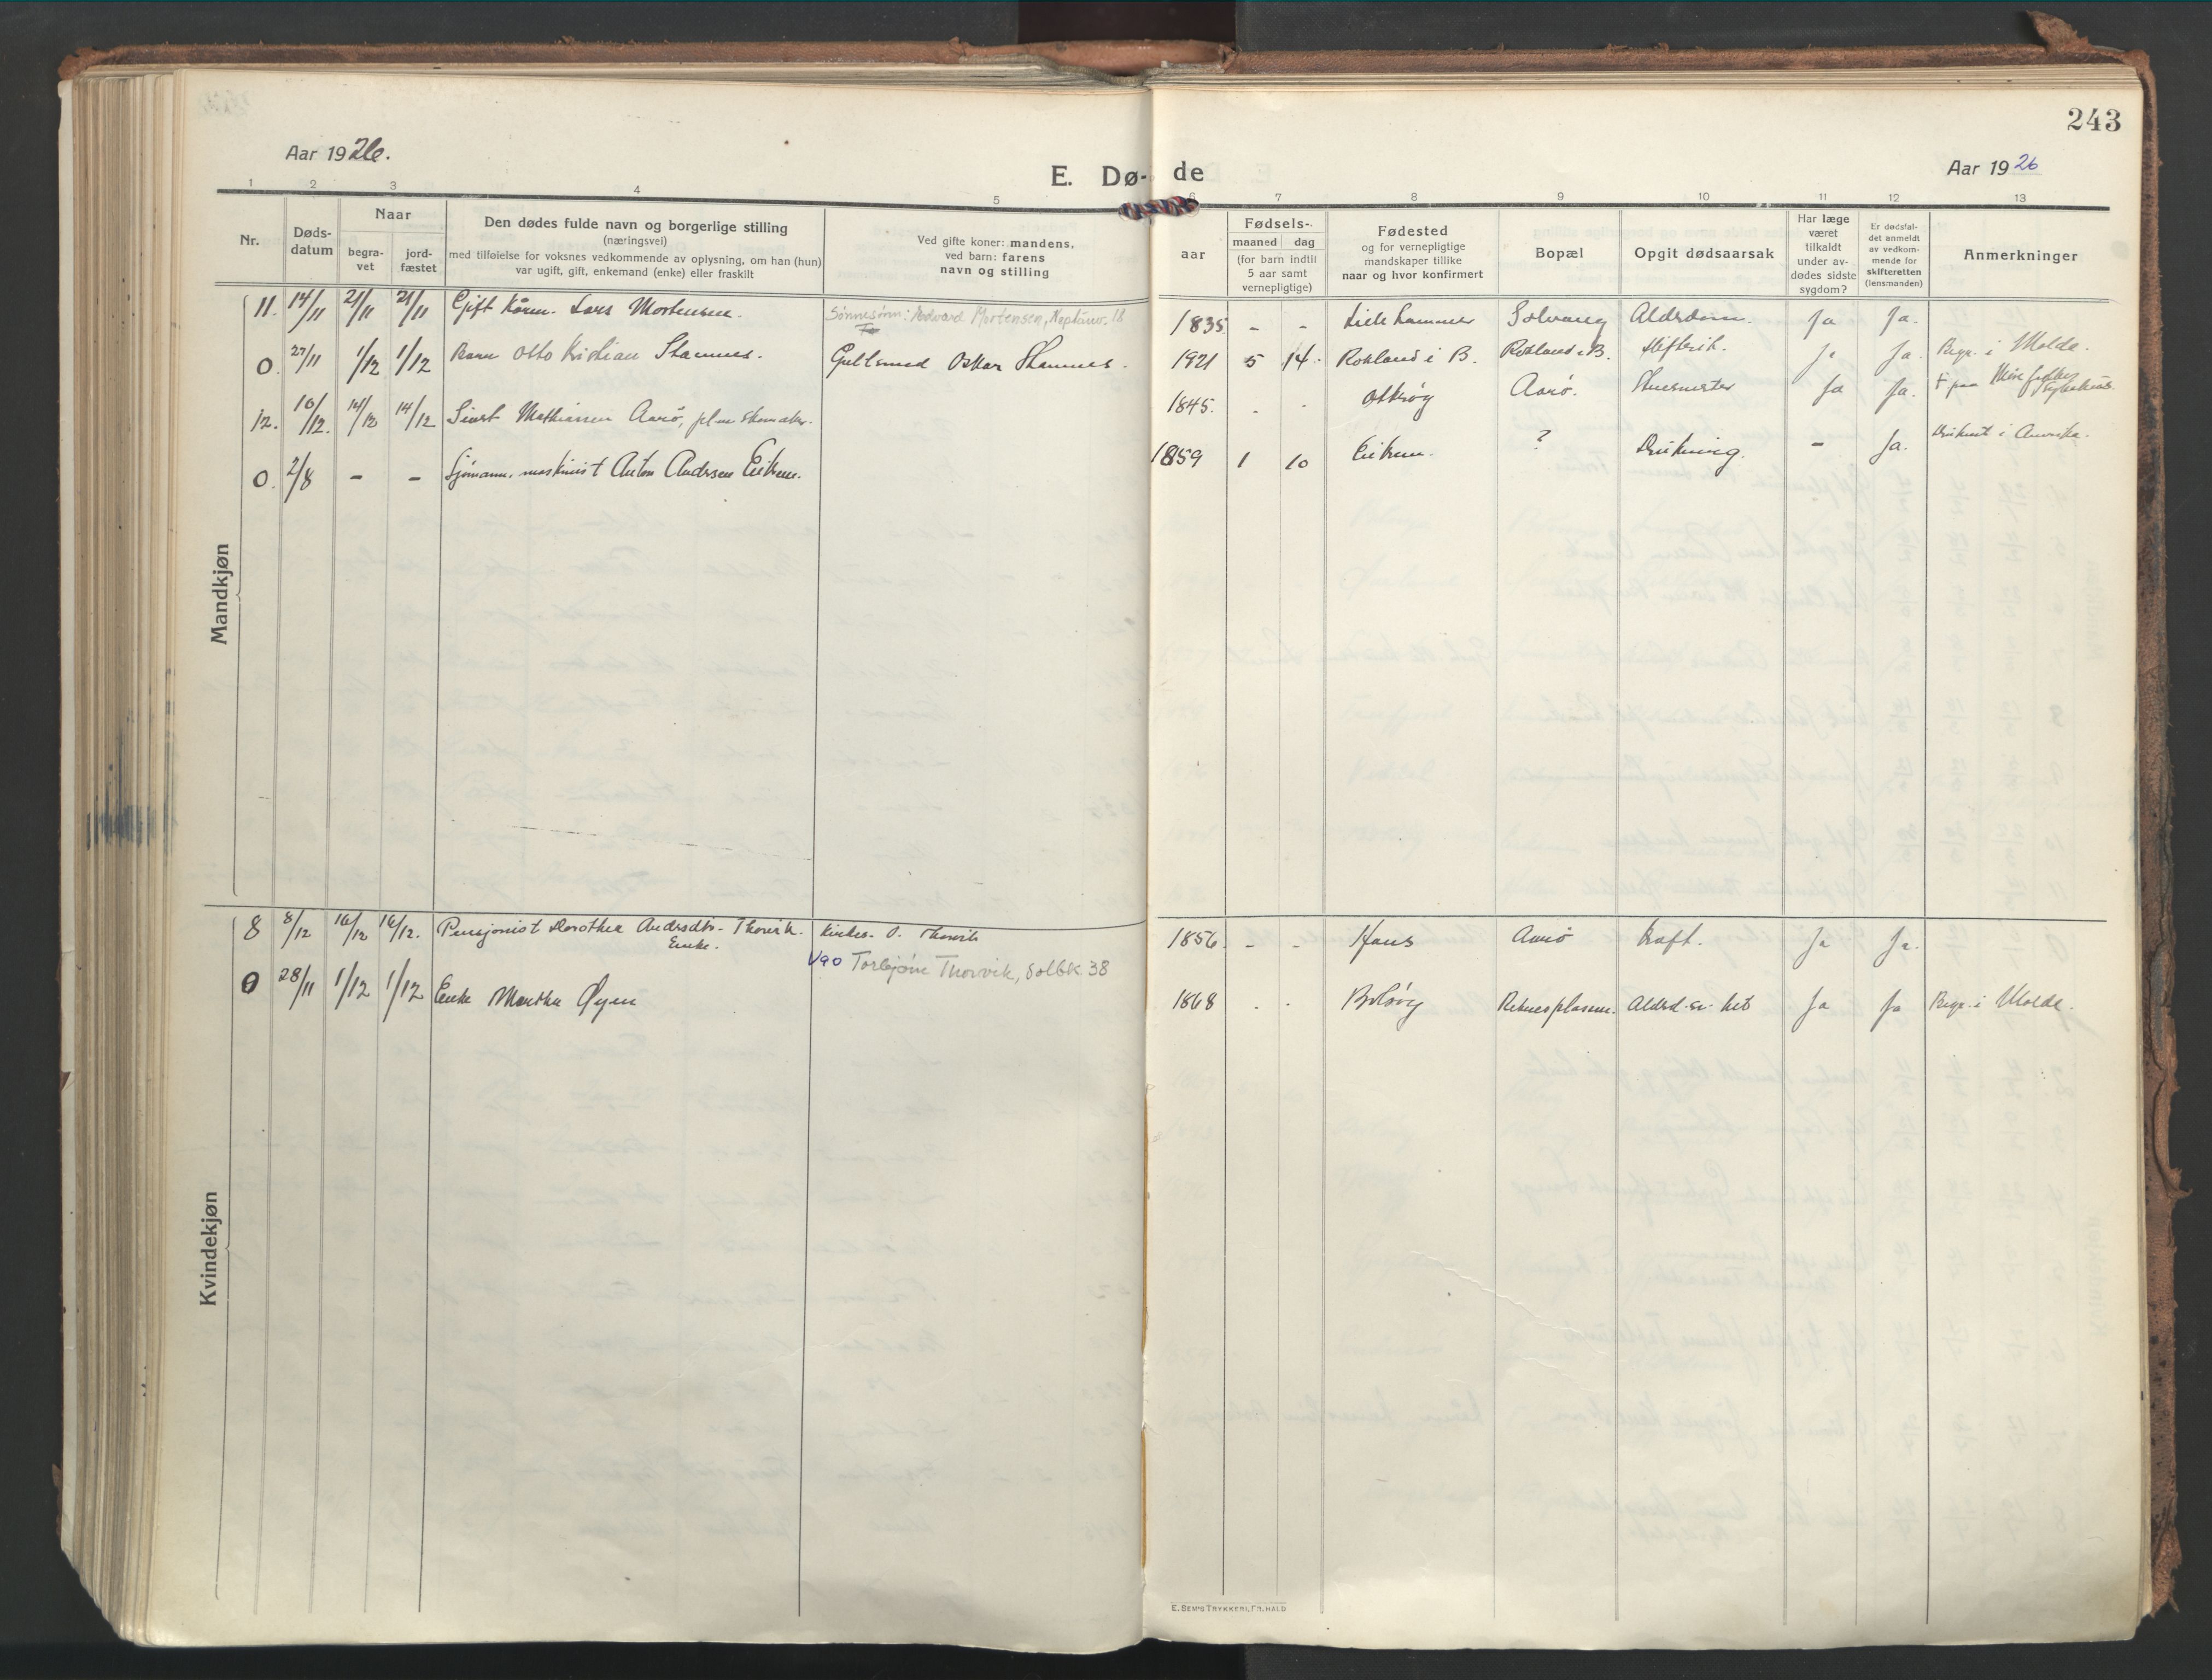 243
Aar 1926.
E. Dø- de
Aar 1926
1 2 3 4 5 6 7 8 9 10 11 12 13
Nr.
Døds-
datum
Naar
begra-
vet
jord-
fæstet
Den dødes fulde navn og borgerlige stilling
(næringsvei)
med tilføielse for voksnes vedkommende av oplysning, om han (hun)
var ugift, gift, enkemand (enke) eller fraskilt
Ved gifte koner: mandens,
ved barn: farens
navn og stilling
Fødsels-
aar
maaned dag
(for barn indtil
5 aar samt
vernepligtige)
Fødested
og for vernepligtige
mandskaper tillike
naar og hvor konfirmert
Bopæl
Opgit dødsaarsak
Har læge
været
tilkaldt
under av-
dødes sidste
sygdom?
Er dødsfal-
det anmeldt
av vedkom-
mende for
skifteretten
(lensmanden)
Anmerkninger
Mandkjøn
11. 14/11 21/11 21/11 Gift Kårm. Lars Mortensen. Sønnesønn: Edvard Mortensen, Neptunv. 18 1835 - - Lillehammer Solvang Alderdom. Ja Ja.
0. 27/11 1/12 1/12 Barn Otto Kristian Stamnes. Gullsmed Oskar Stamnes. 1921 5 14. Rokland i B. Rokland i B. Difterit. Ja Ja. Begr. i Molde.
12. 10/12. 14/12 14/12 Sivert Mathiassen Aarø, skomaker. 1845. - - Otterøy Aarø. Ja Ja. + paa
0. 2/8 - - Sjømann, maskinist Anton Andersen Eikrem. 1859 1 10 Eikrem. ? Drukning. - Ja. Druknet i Amerika.
Kvindekjøn
8 8/12 16/12 16/12. Pensjonist Dorothea Andersdtr. Thorvik. Kirkes. O. Thorvik 1856. - - Aarø Kræft. Ja Ja.
Enke.
Torbjørn Thorvik, Solbk. 38
0 28/11 1/12 1/12 Enke Martha Øyen 1868 - - Bolsøy Ja Ja Begr. i Molde.
E. SEM'S TRYKKERI, FR.HALD